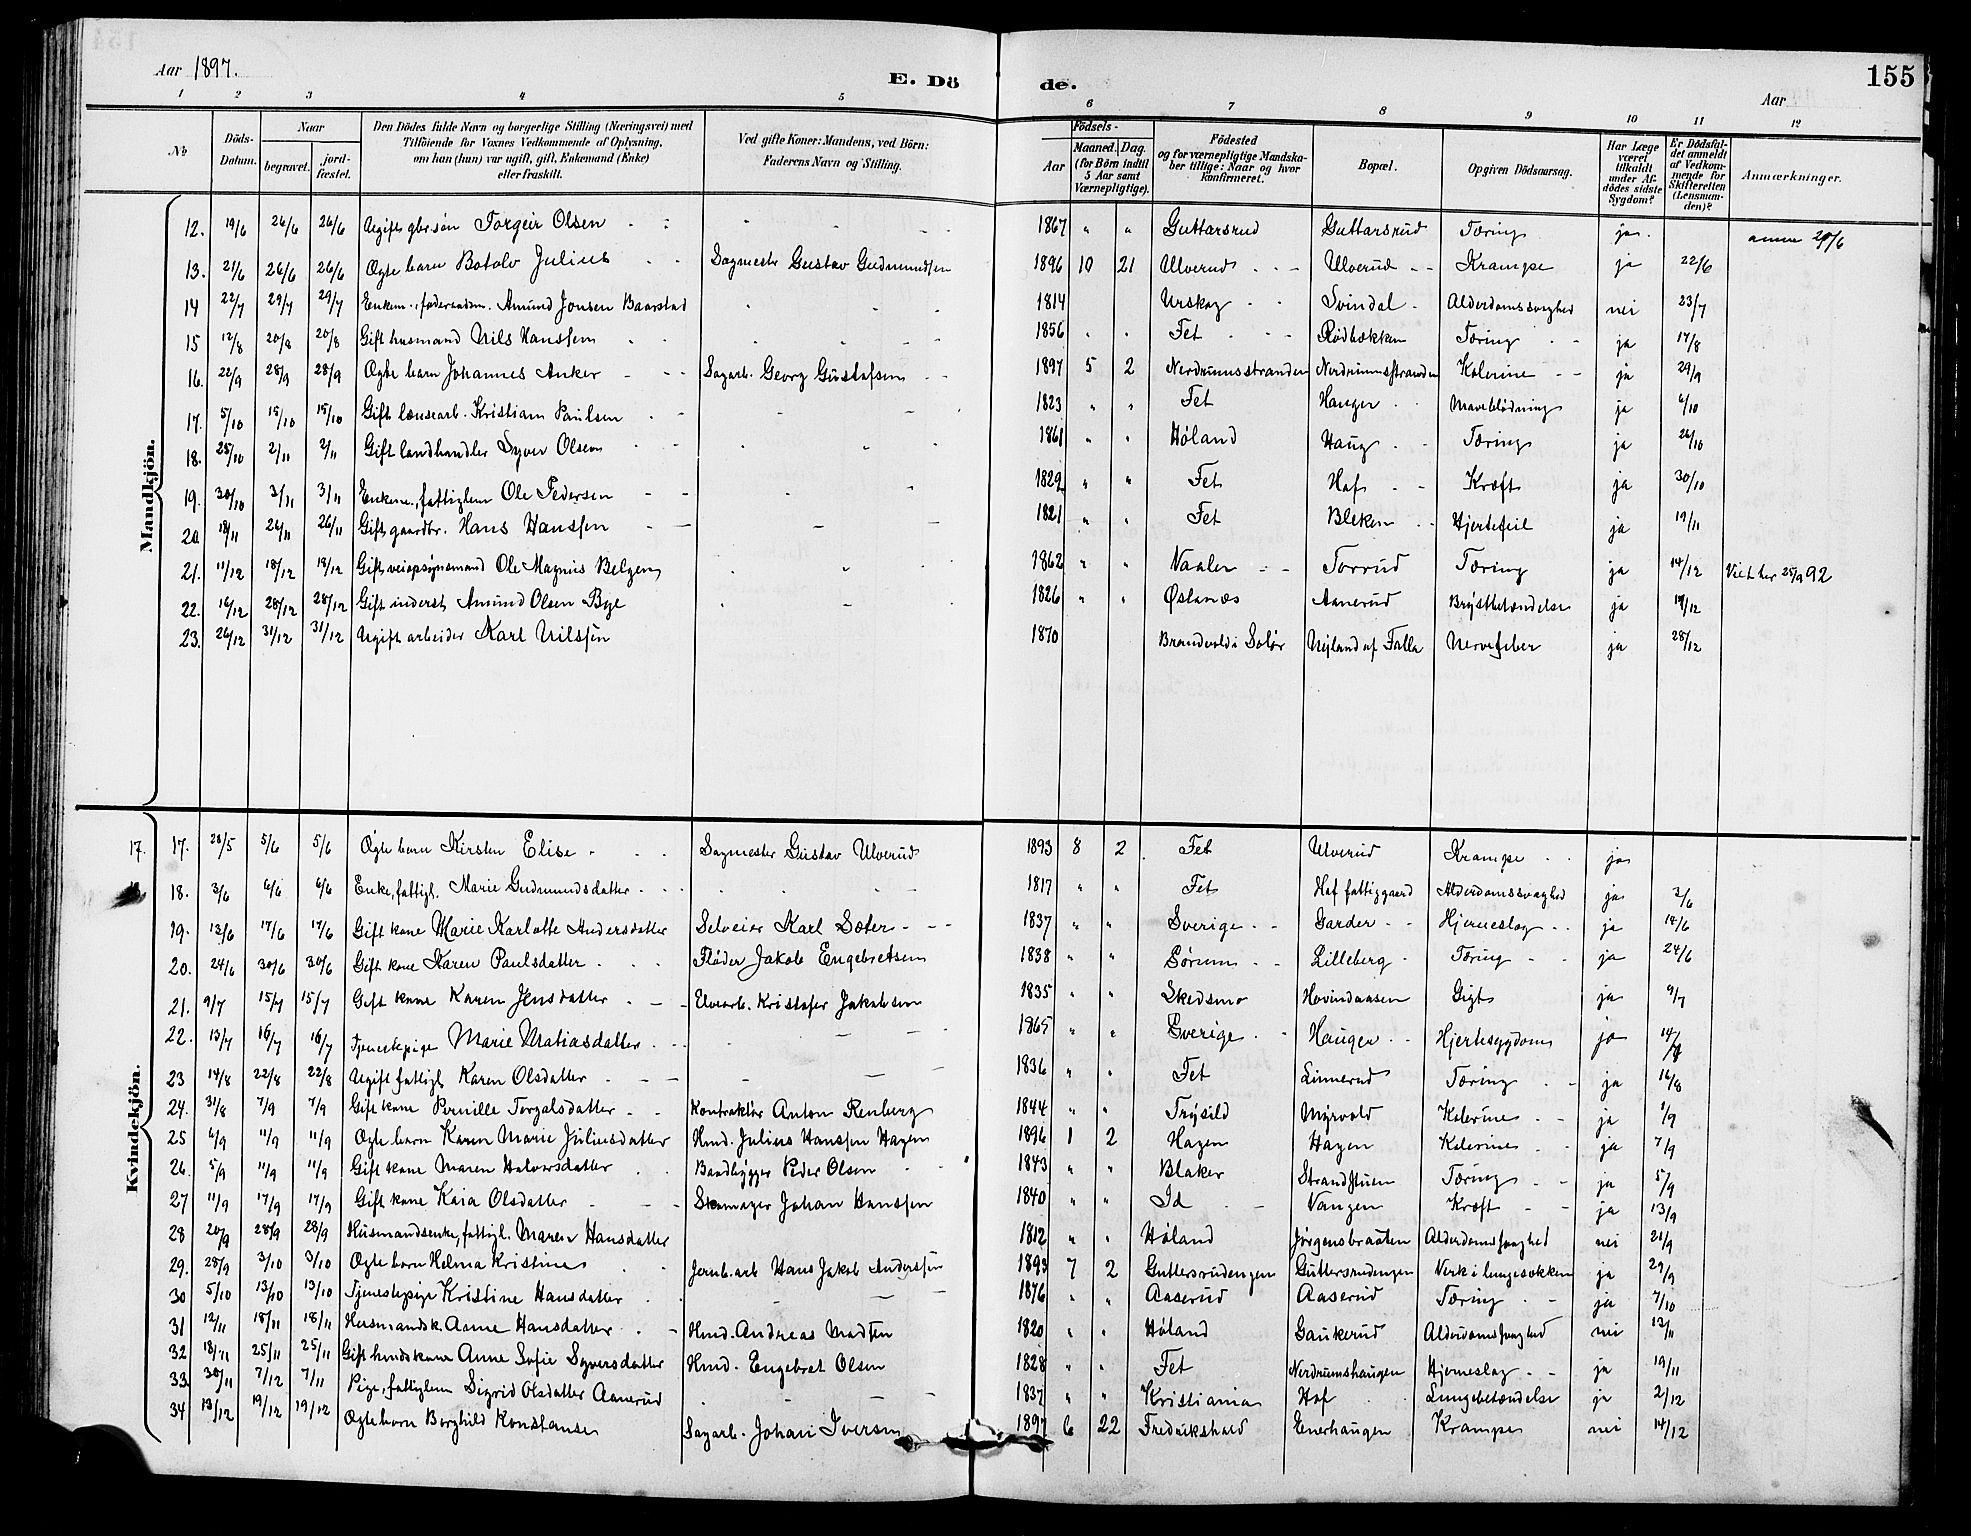 Aar 1897.
E. Dö de.
155
Aar
1 2 3 4 5 6 7 8 9 10 11 12
No
Döds-Datum.
Naar
begravet.
jord-fæstet.
Den Dödes fulde Navn og borgerlige Stilling (Næringsvei) med
Tilföiende for Voxnes Vedkommende af Oplysning,
om han (hun) var ugift, gift, Enkemand (Enke)
eller fraskilt.
Ved gifte Koner: Mandens, ved Börn:
Faderens Navn og Stilling.
Födsels-
Aar
Maaned. Dag.
(for Börn indtil
5 Aar samt
Værnepligtige).
Födested
og for værnepligtige Mandska-
ber tillige: Naar og hvor
konfirmeret.
Bopæl.
Opgiven Dödsaarsag.
Har Læge
været
tilkaldt
under Af-
dödes sidste
Sygdom?
Er Dödsfal-
det anmeldt
af Vedkom-
mende for
Skifteretten
(Lensman-
den)?
Anmærkninger.
Mandkjön.
12. 19/6 26/6 26/6 Ugift gbr.søn Torgeir Olsen 1867 " " Guttarsrud Guttarsrud Tæring ja.
13. 21/6 26/6 26/6 Ægte barn Botolv Julius Sagmester Gustav Gudmundsen 1896 10 21 Ulverud Ulverud Krampe ja 22/6
14 22/7 29/7 29/7 Enkem., føderaadsm. Amund Jonsen Baarstad 1814 Urskog Svindal Alderdomssvaghed nei 23/7
15 12/8 20/8 20/8 Gift husmand Nils Hanssen 1856 " " Fet Rødbækken Tæring ja 17/8
16. 22/9 28/9 28/9 Ægte barn Johannes Anker Sagarb. Georg Gustafsen 1897 5 2 Nerdrumsstranden Nerdrumsstranden Kolerine ja 29/9
17. 5/10 15/10 15/10 Gift lænsearb. Kristian Paulsen 1823 " " Fet Hauger Maveblødning ja 6/10
18. 25/10 2/11 2/11 Gift landhandler Syver Olsen 1861 " " Høland Haug Tæring ja 26/10
19. 30/10 3/11 3/11 Enkem., fattiglem Ole Pedersen 1829 " " Fet Hof Kræft ja 30/10
20. 18/11 26/11 26/11 Gift gaardbr. Hans Hanssen 1821 " " Fet Bleken Hjertefeil ja 19/11
21. 11/12 18/12 18/12 Gift veiopsynsmand Ole Magnus Belgen 1862 " " Vaaler Torrud Tæring ja 14/12 Viet her 25/9 92
22. 16/12 28/12 28/12 Gift inderst Amund Olsen Bye 1826 " " Øslanæs Aanerud Brystbetændelse ja 17/12
23. 26/12 31/12 31/12 Ugift arbeider Karl Nilssen 1870 Brandvold i Solør Nyland af Falla Nervefeber ja 28/12
Kvindekjön.
17. 17. 28/5 5/6 5/6 Ægte barn Kirsten Elise Sagmester Gustav Ulverud 1893 8 2 Fet Ulverud Krampe ja
18. 3/6 6/6 6/6 Enke, fattigl. Marie Gudmundsdatter 1817 " " Fet Hof fattiggaard Alderdomssvaghed ja 3/6
19. 12/6 17/6 17/6 Gift kone Marie Karlotte Andersdatter Selveier Karl Sæter 1837 " " Sverige Garder Hjerneslag ja 14/6
20. 24/6 30/6 30/6 Gift kone Karen Paulsdatter Fløder Jakob Engebretsen 1838 " " Sørum Lilleberg Tæring ja 24/6
21. 9/7 15/7 15/7 Gift kone Karen Jensdatter Elvearb. Kristofer Jakobsen 1835 " " Skedsmo Hovindaasen Gigt ja 9/7
22. 13/7 16/7 16/7 Tjenestepige Marie Matiasdatter 1865 " " Sverige Hauger Hjertesygdom ja 14/7
23 14/8 22/8 22/8 Ugift fattigl. Karen Olsdatter 1836 " " Fet Linnerud Tæring ja 16/8
24. 31/8 7/9 7/9 Gift kone Pernille Torgalsdatter Kontraktør Anton Renberg 1844 " " Trysild Myrvold Kolerine ja 1/9
25 6/9 11/9 11/9 Ægte barn Karen Marie Juliusdatter Hmd. Julius Hanssen Hagen 1896 1 2 Hagen Hagen Kolerine ja 7/9
26. 5/9 11/9 11/9 Gift kone Maren Halvorsdatter Baadbygger Peder Olsen 1843 " " Blaker Strandstuen Tæring ja 5/9
27 11/9 17/9 17/9 Gift kone Kaia Olsdatter Skomager Johan Hanssen 1840 " " Id Vangen Kræft ja 13/9
28 20/9 28/9 28/9 Husmandsenke, fattigl. Maren Hansdatter 1812 " " Høland Jørgensbraaten Alderdomssvaghed nei 21/9
29. 28/9 3/10 3/10 Ægte barn Helma Kristine Jernb.arb Hans Jakob Anderssen 1893 7 2 Guttersrudengen Guttersrudengen Verk i lungesækken ja 29/9
30 5/10 13/10 13/10 Tjenestepige Kristine Hansdatter 1876 " " Aaserud Aaserud Tæring ja 7/10
31 12/11 18/11 18/11 Husmandsk. Anne Hansdatter Hmd. Andreas Madsen 1820 " " Høland Gaukerud Alderdomssvaghed nei 13/11
32 18/11 25/11 25/11 Gift hmdskone Anne Sofie Syversdatter Hmd. Engebret Olsen 1828 " " Fet Nerdrumshaugen Hjerneslag ja 19/11
33. 30/11 7/12 7/11 Pige, fattiglem Sigrid Olsdatter Aanerud 1837 " " Kristiania Hof Lungebetændelse ja 2/12
34 13/12 19/12 19/12 Ægte barn Borghild Konstanse Sagarb. Johan Iversen 1897 6 22 Fredrikshald Enerhaugen Krampe nei 14/12